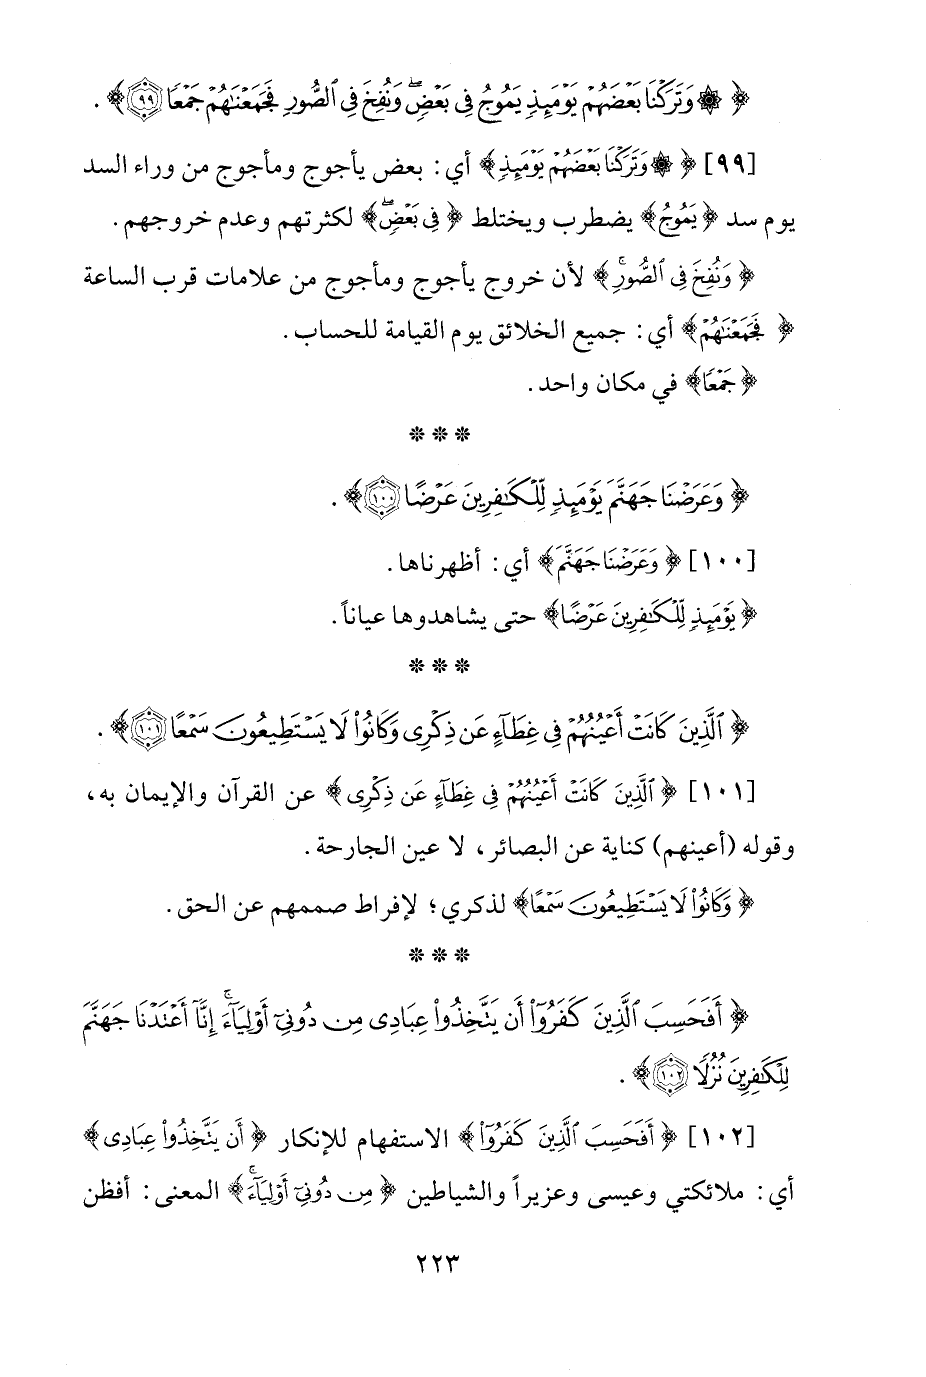 ﴿ ۞ وَتَرَكْنَا بَعْضَهُمْ يَوْمَئِذٍ يَمُوجُ فِى بَعْضٍ ۖ وَنُفِخَ فِى ٱلصُّورِ فَجَمَعْنَٰهُمْ جَمْعًا ٩٩ ﴾ .
[٩٩] ﴿ ۞ وَتَرَكْنَا بَعْضَهُمْ يَوْمَئِذٍ ﴾ أي: بعض يأجوج ومأجوج من وراء السد
يوم سد ﴿ يَمُوجُ ﴾ يضطرب ويختلط ﴿ فِى بَعْضٍ ۖ ﴾ لكثرتهم وعدم خروجهم.
﴿ وَنُفِخَ فِى ٱلصُّورِ ۚ ﴾ لأن خروج يأجوج ومأجوج من علامات قرب الساعة
﴿ فَجَمَعْنَٰهُمْ ﴾ أي: جميع الخلائق يوم القيامة للحساب.
﴿ جَمْعًا ﴾ في مكان واحد.
* * *
﴿ وَعَرَضْنَا جَهَنَّمَ يَوْمَئِذٍ لِّلْكَٰفِرِينَ عَرْضًا ١٠٠ ﴾ .
[١٠٠] ﴿ وَعَرَضْنَا جَهَنَّمَ ﴾ أي: أظهرناها.
﴿ يَوْمَئِذٍ لِّلْكَٰفِرِينَ عَرْضًا ﴾ حتى يشاهدوها عياناً.
* * *
﴿ ٱلَّذِينَ كَانَتْ أَعْيُنُهُمْ فِى غِطَآءٍ عَن ذِكْرِى وَكَانُوا۟ لَا يَسْتَطِيعُونَ سَمْعًا ١٠١ ﴾ .
[١٠١] ﴿ ٱلَّذِينَ كَانَتْ أَعْيُنُهُمْ فِى غِطَآءٍ عَن ذِكْرِى ﴾ عن القرآن والإيمان به،
وقوله (أعينهم) كناية عن البصائر، لا عين الجارحة.
﴿ وَكَانُوا۟ لَا يَسْتَطِيعُونَ سَمْعًا ﴾ لذكري؛ لإفراط صممهم عن الحق.
* * *
﴿ أَفَحَسِبَ ٱلَّذِينَ كَفَرُوٓا۟ أَن يَتَّخِذُوا۟ عِبَادِى مِن دُونِىٓ أَوْلِيَآءَ ۚ إِنَّآ أَعْتَدْنَا جَهَنَّمَ
لِلْكَٰفِرِينَ نُزُلًا ١٠٢ ﴾ .
[١٠٢] ﴿ أَفَحَسِبَ ٱلَّذِينَ كَفَرُوٓا۟ ﴾ الاستفهام للإنكار ﴿ أَن يَتَّخِذُوا۟ عِبَادِى ﴾
أي: ملائكتي وعيسى وعزيراً والشياطين ﴿ مِن دُونِىٓ أَوْلِيَآءَ ۚ ﴾ المعنى: أفظن
٢٢٣